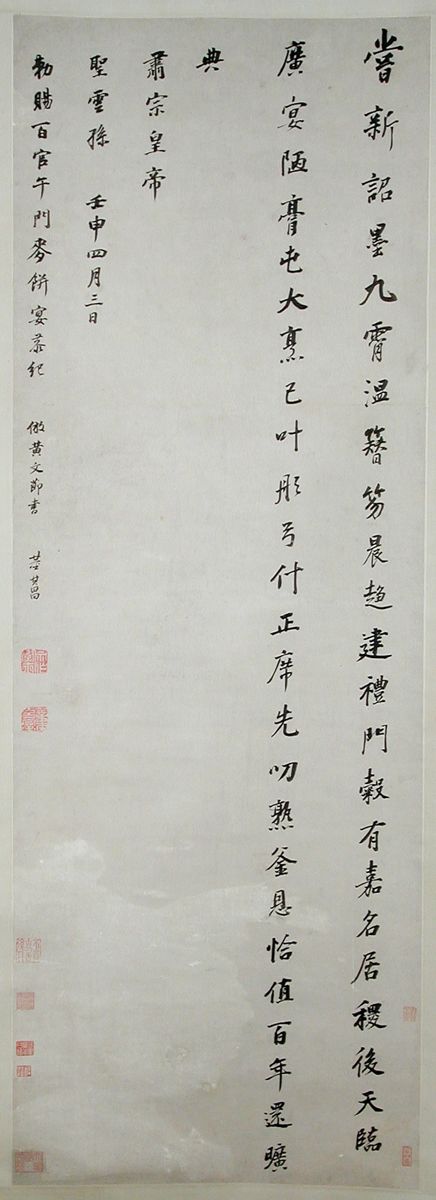 嘗新詔墨九霄温簮笏晨趍建禮門穀有嘉名居稷後天臨
廣宴陋膏屯大烹已叶彤弓什正席先叨熟釜恩恰值百年還曠
典
肅宗皇帝
聖雲孫 壬申四月三日
勅賜百官午門麥餅宴恭紀 倣黄文節書 董其昌